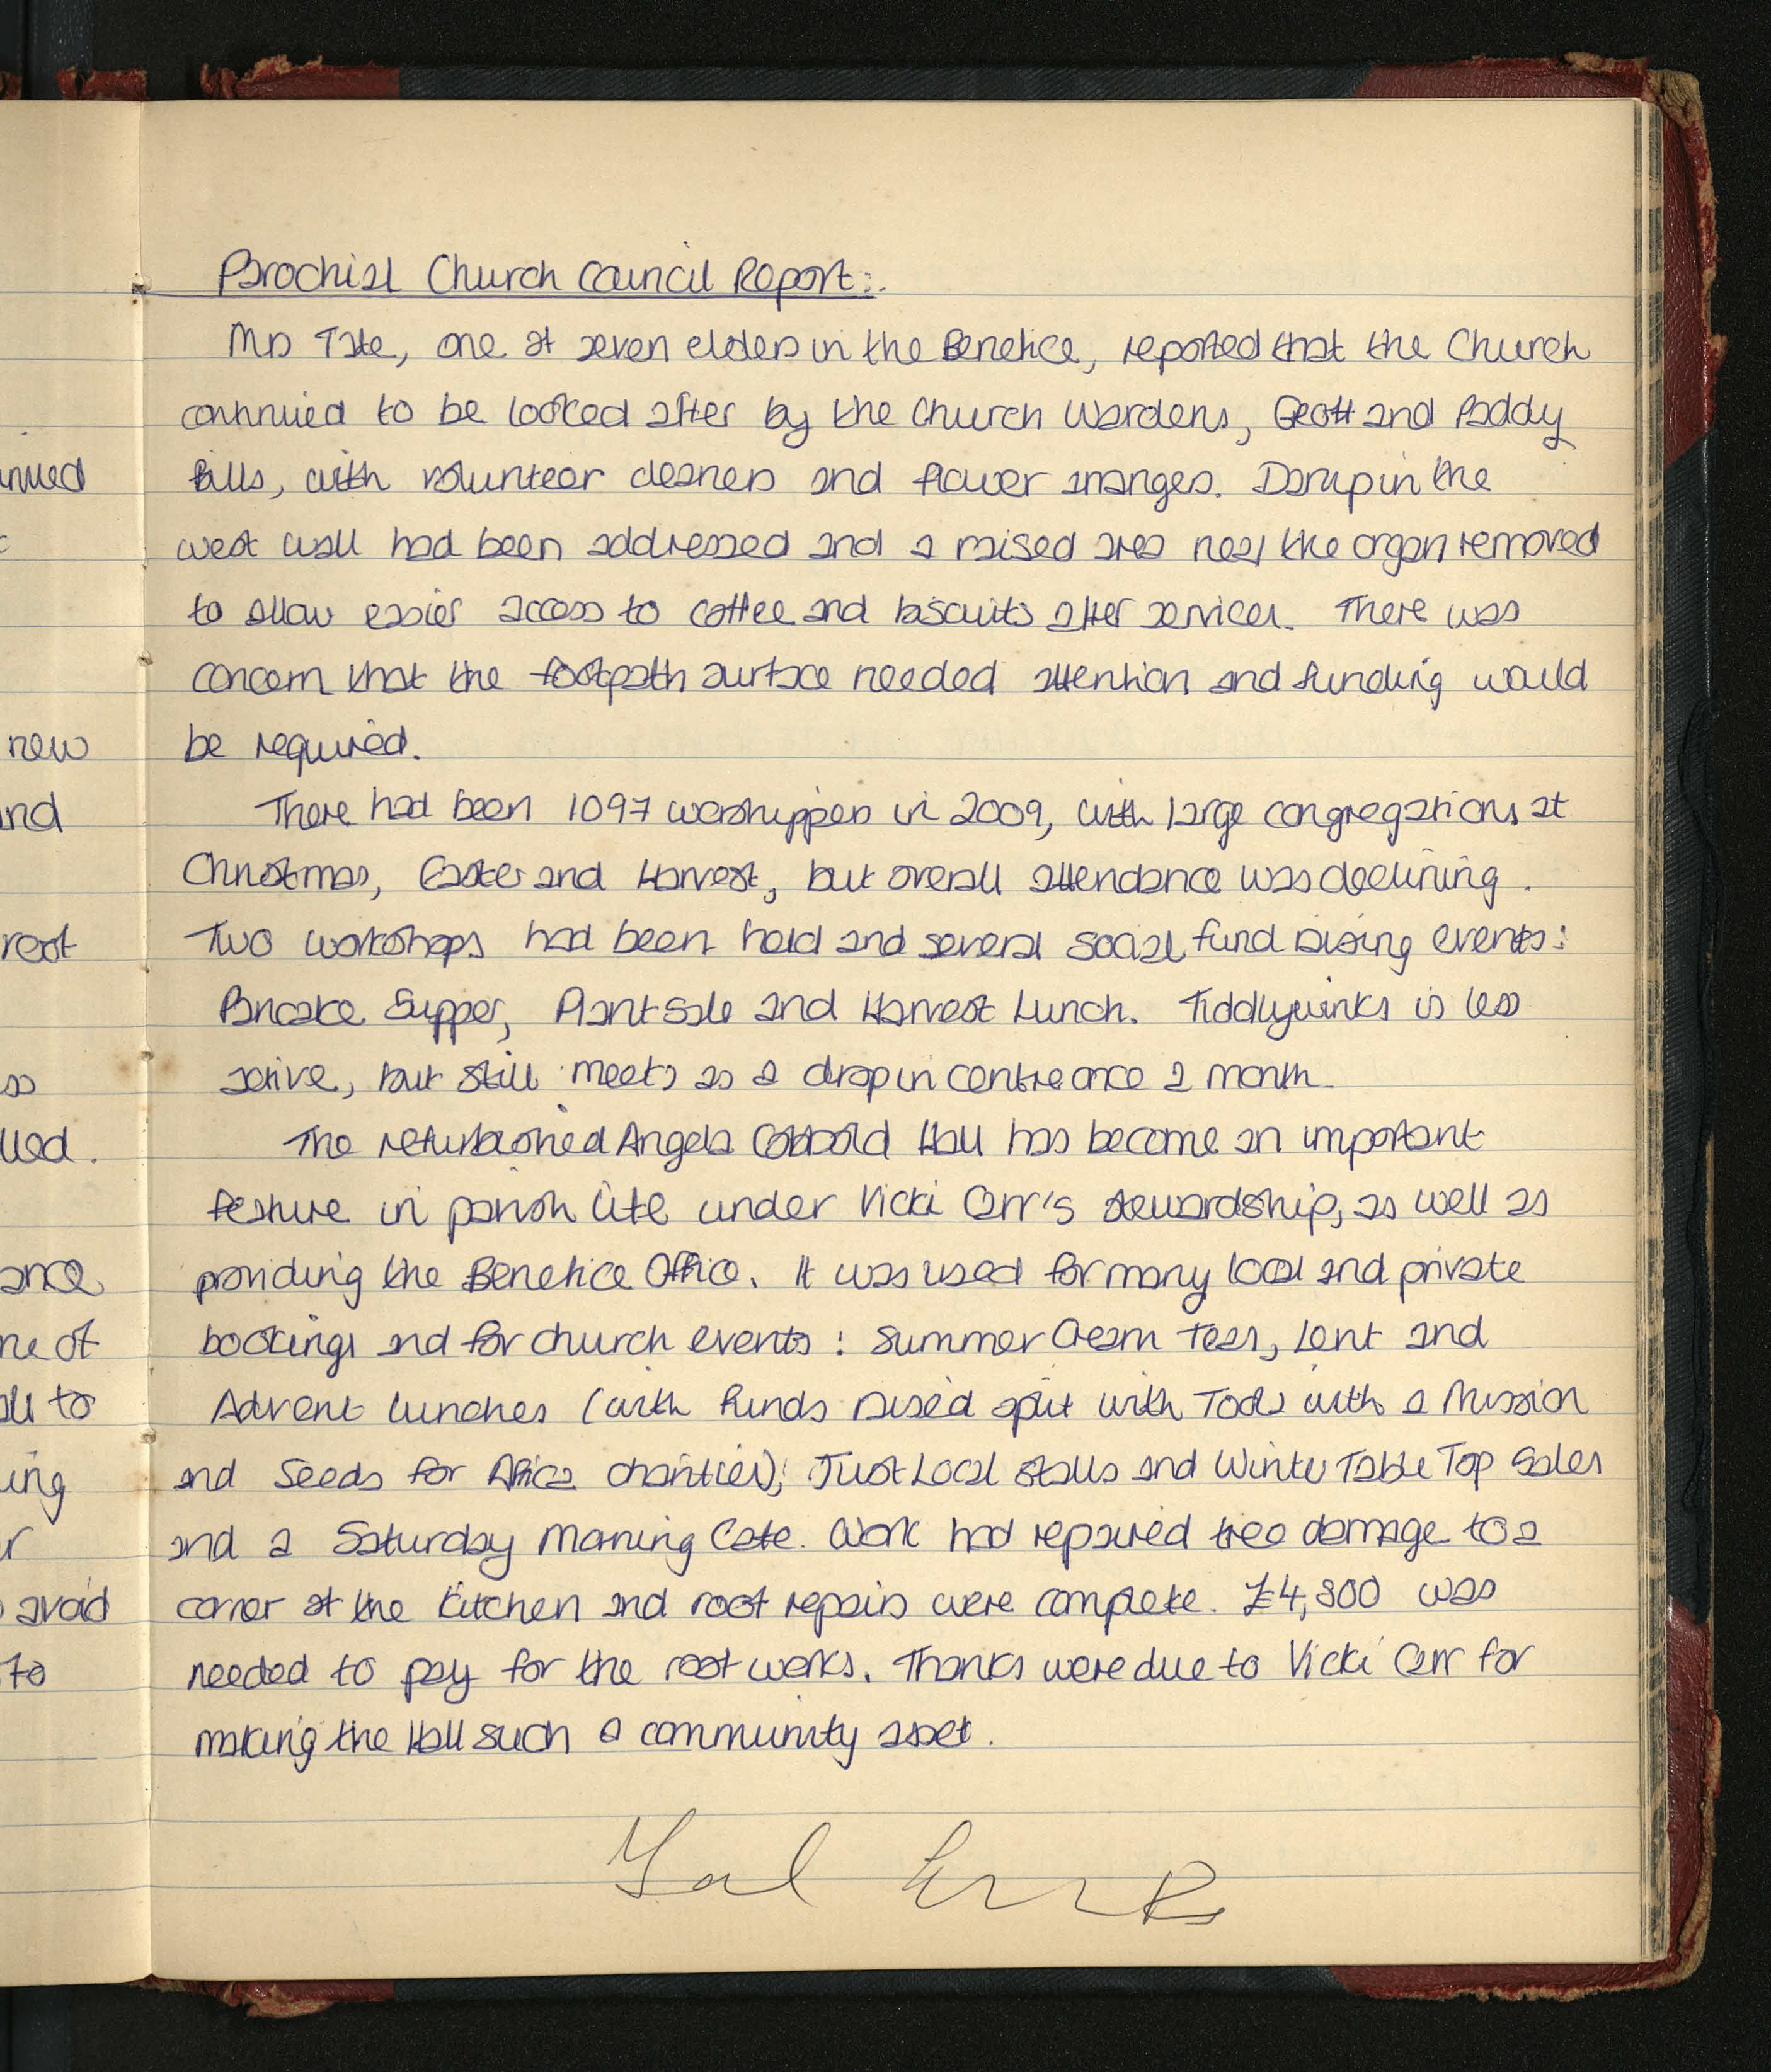 Parochial Church Council Report:.
Mrs Tate, one of seven elders in the Benefice, reported that the Church
continued to be looked after by the Church Wardens, Geoff and Paddy
Bills, with volunteer cleaners and flower arranges. Damp in the
west wall had been addressed and a raised area near the organ removed
to allow easier access to coffee and biscuits after services. There was
concern that the footpath surface needed attention and funding would
be required.
There had been 1097 worshippers in 2009, with large congregations at
Christmas, Easter and Harvest, but overall attendance was declining.
Two workshops had been held and several social fund raising events:
Pancake Supper, Plant Sale and Harvest Lunch. Tiddlywinks is less
active, but still meets as a drop in centre once a month.
The refurbished Angela Cobbold Hall has become an important
feature in parish life under Vicki Carr's stewardship, as well as
providing the Benefice Office. It was used for many local and private
bookings and for church events: Summer Cream Teas, Lent and
Advent lunches (with funds raised split with Tools with a Mission
and Seeds for Africa charities); Just Local stalls and Winter Table Top Sales
and a Saturday Morning Cafe. Work had repaired tree damage to a
corner of the kitchen and roof repairs were complete. £4,800 was
needed to pay for the roof works. Thanks were due to Vicki Carr for
making the Hall such a community asset.
inued
new
nd
roof
ss
lled.
ance
ne of
all to
ing
r
avoid
to